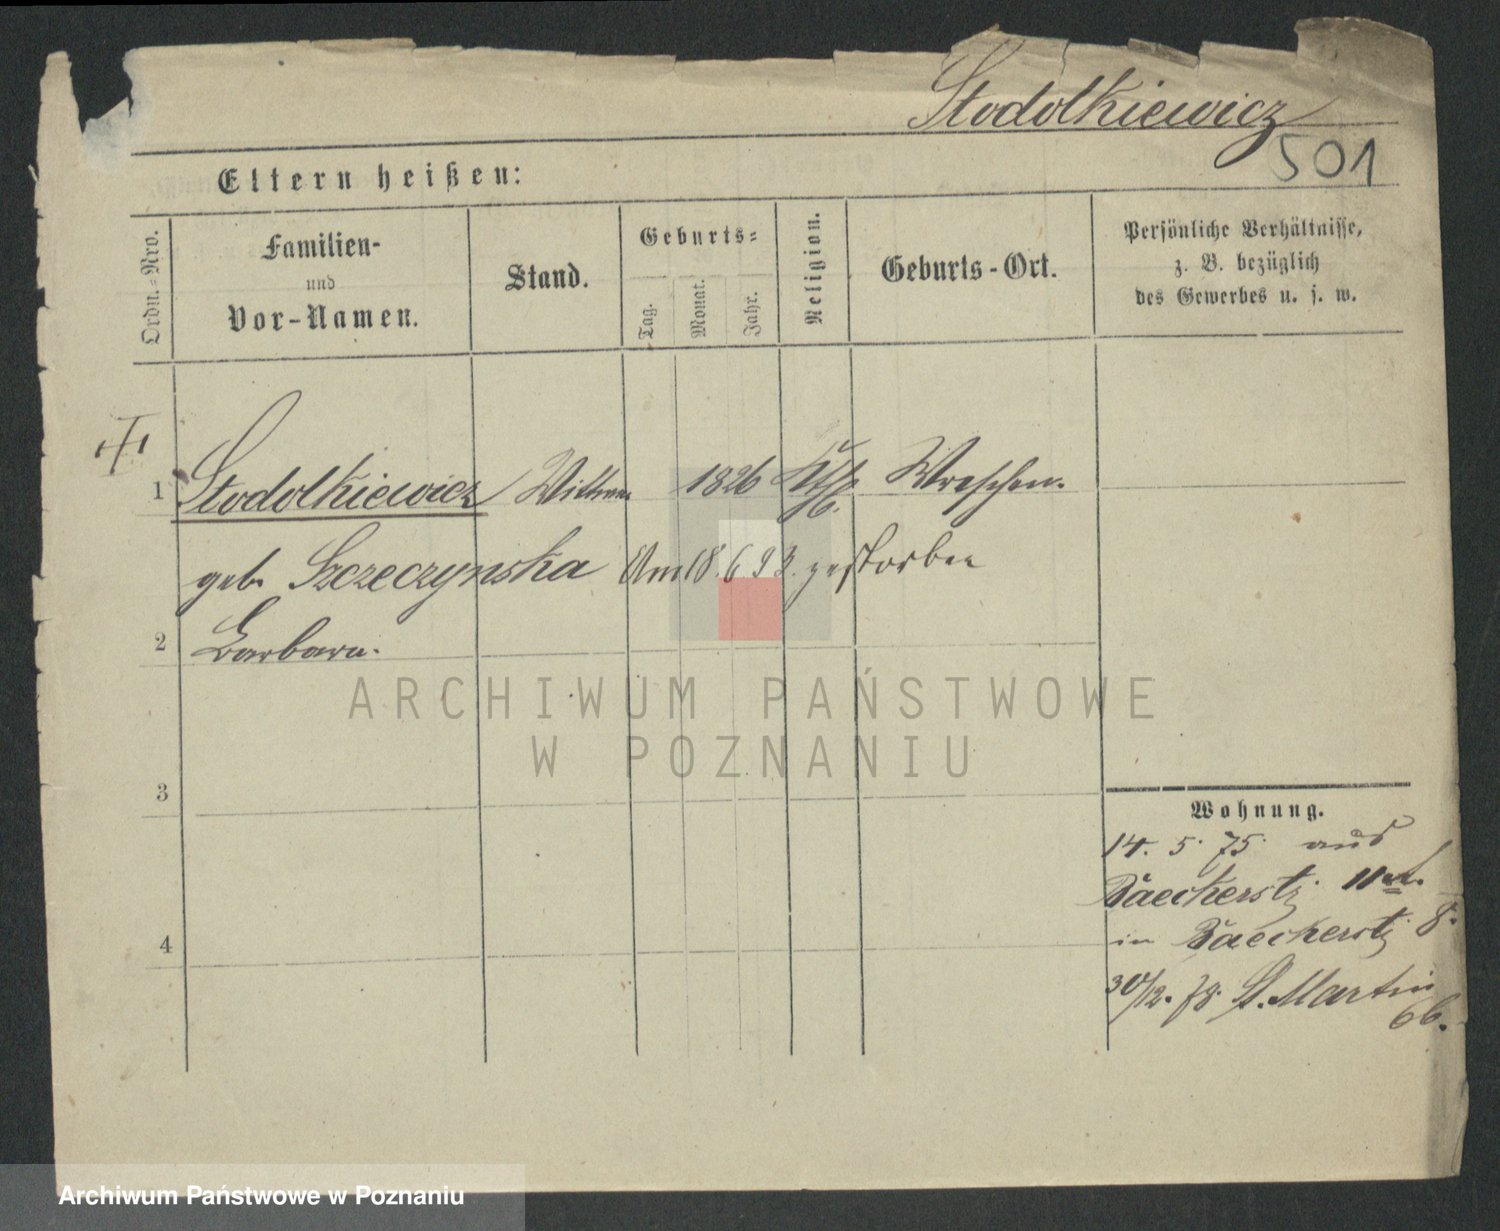 Stodolkiewicz
501
Eltern heißen:
Ordn.-Nro.
Familien-
und
Vor-Namen.
Stand.
Geburts=
Tag.
Monat.
Jahr.
Religion.
Geburts-Ort.
Persönliche Verhältnisse,
z. B. bezüglich
des Gewerbes u. s. w.
1 Stodolkiewicz Wittwe 1826 Kth. Wreschen.
geb. Szczeczynska Am 18.6.93. gestorben
2 Barbara.
3
4
Wohnung.
14. 5. 75. aus
Baeckerstr. 11
in Baeckerstr. 8.
30/12. 78. St. Martin
66.
ARCHIWUM PAŃSTWOWE
W POZNANIU
Archiwum Państwowe w Poznaniu